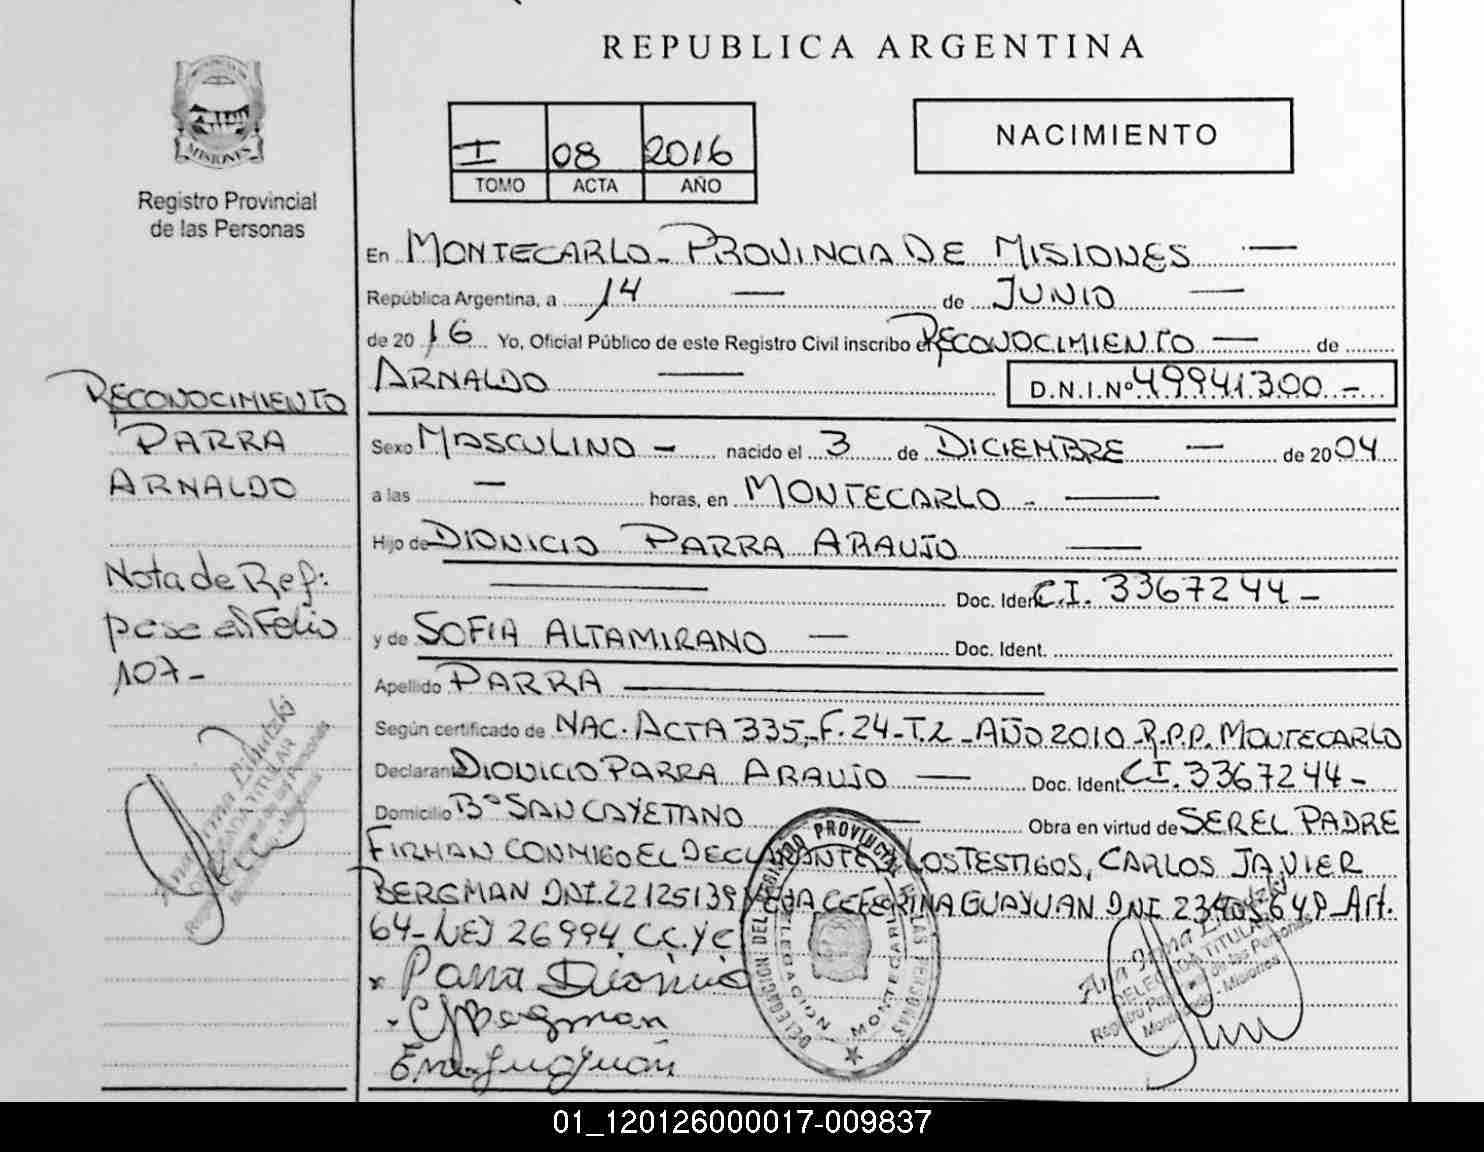 REPUBLICA ARGENTINA
MISIONES
Registro Provincial
de las Personas
I 08 2016
TOMO ACTA AÑO
NACIMIENTO
En MONTECARLO - PROVINCIA DE MISIONES -
República Argentina, a 14 — de JUNIO —
de 2016 Yo, Oficial Público de este Registro Civil inscribo el RECONOCIMIENTO — de
ARNALDO — D.N.I.Nº 49941300.-
RECONOCIMIENTO
PARRA
ARNALDO
Nota de Ref:
pase al Folio
107-
Sexo MASCULINO - nacido el 3 de DICIEMBRE — de 2004
a las — horas, en MONTECARLO - —
Hijo de DIONICIO PARRA ARAUJO —
Doc. Ident. C.I. 3367244 -
y de SOFIA ALTAMIRANO — Doc. Ident.
Apellido PARRA —
Según certificado de NAC. ACTA 335 - F. 24 - T.2 - AÑO 2010 - R.P.P. MONTECARLO
Declarante DIONICIO PARRA ARAUJO — Doc. Ident. C.I. 3367244 -
Domicilio Bº SAN CAYETANO — Obra en virtud de SER EL PADRE
FIRMAN CONMIGO EL DECLARANTE Y LOS TESTIGOS, CARLOS JAVIER
BERGMAN DNI. 22125139 CEFERINA GUAYUAN DNI P - Art.
64 - LEY 26994 C.C. Y C
x Parra Dionicio
Bergman
DELEGACION MONTECARLO
REGISTRO PROVINCIAL DE LAS PERSONAS
Ana Irma
DELEGADA TITULAR
Registro Prov. de las Personas
Montecarlo - Misiones
01_120126000017-009837